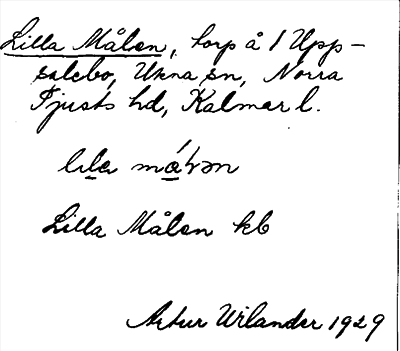 Lilla Målen, torp å 1 Upp-
salebo, Ukna sn, Norra
Tjusts hd, Kalmar l.
Lilla Målen kb
Artur Wilander 1929